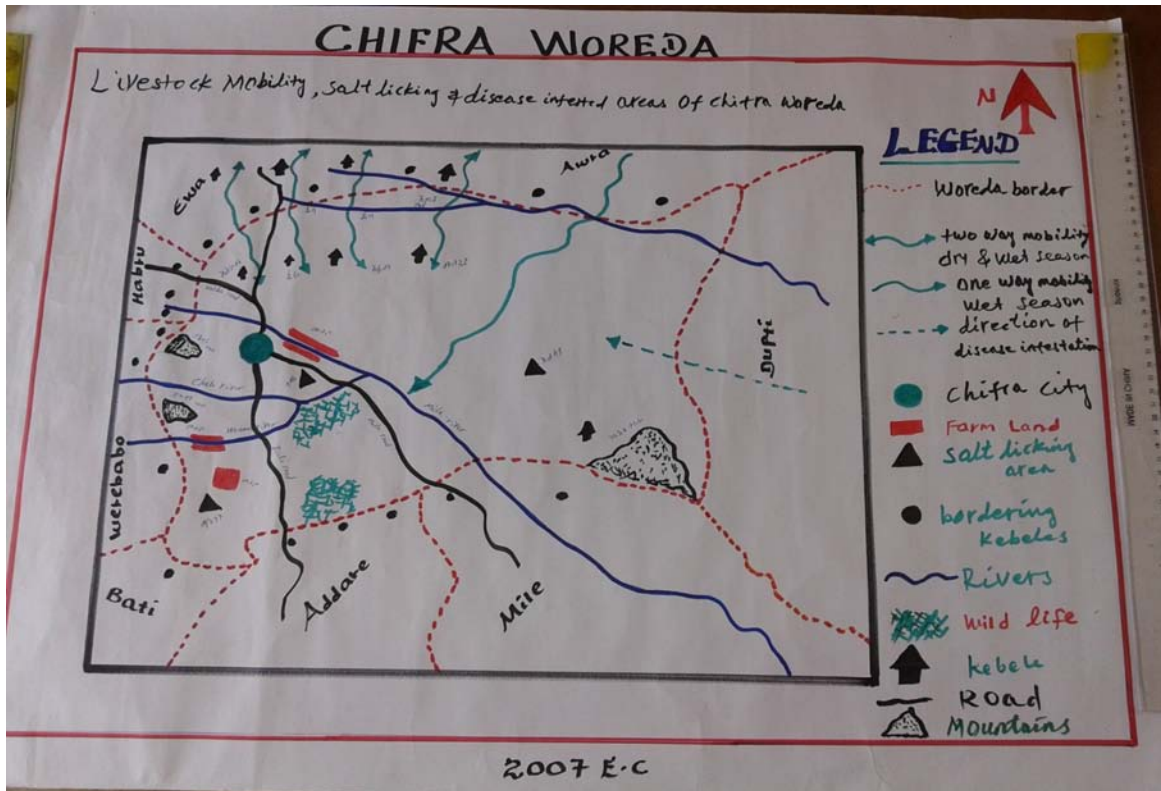 CHIFRA WOREDA
Livestock Mobility, Salt licking & disease infested areas of chifra woreda
N
LEGEND
Woreda border
two way mobility
dry & wet season
one way mobility
wet season
direction of
disease infestation
Chifra City
Farm Land
Salt licking
area
bordering
kebeles
Rivers
Wild life
kebele
ROAD
Mountains
Ewa
Awra
Habru
Dupti
Werebabo
Bati
Addare
Mile
Mile river
2007 E.C